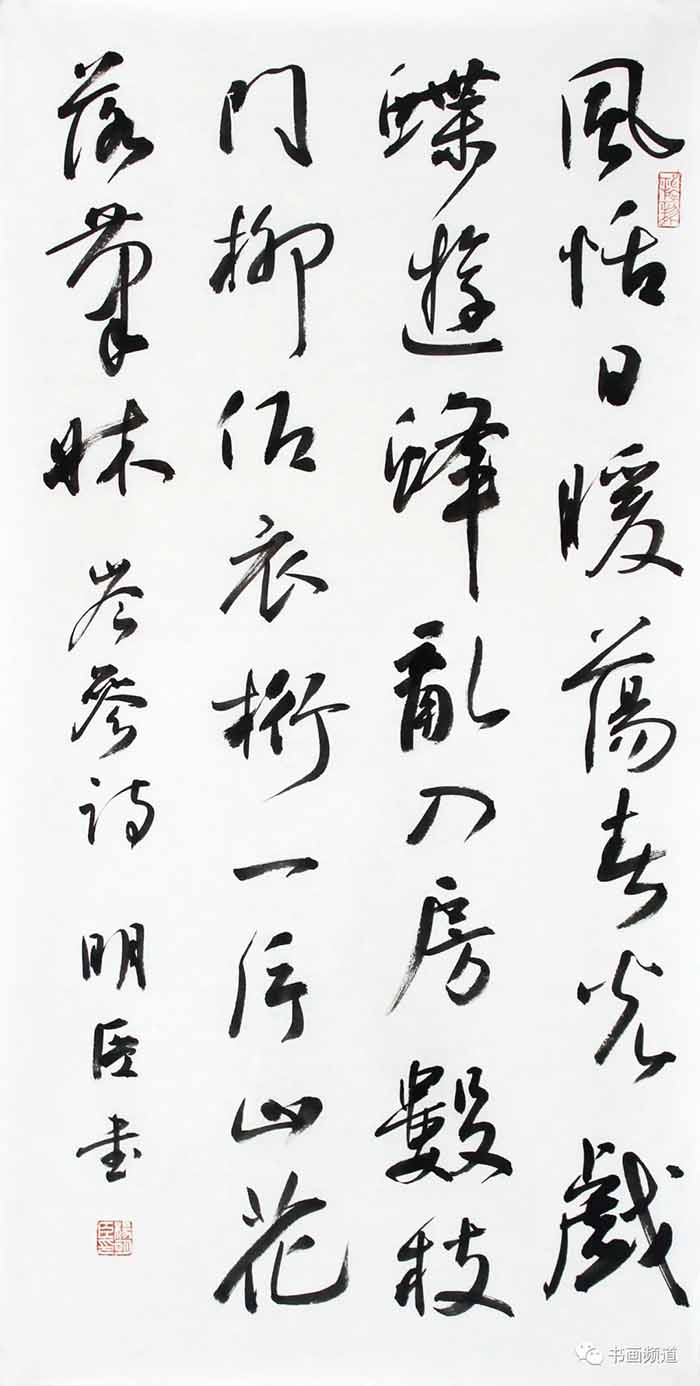 風恬日暖蕩春光戲
蝶遊蜂亂入房數枝
門柳低衣桁一片山花
落筆牀 岑參詩 明臣書
书画频道